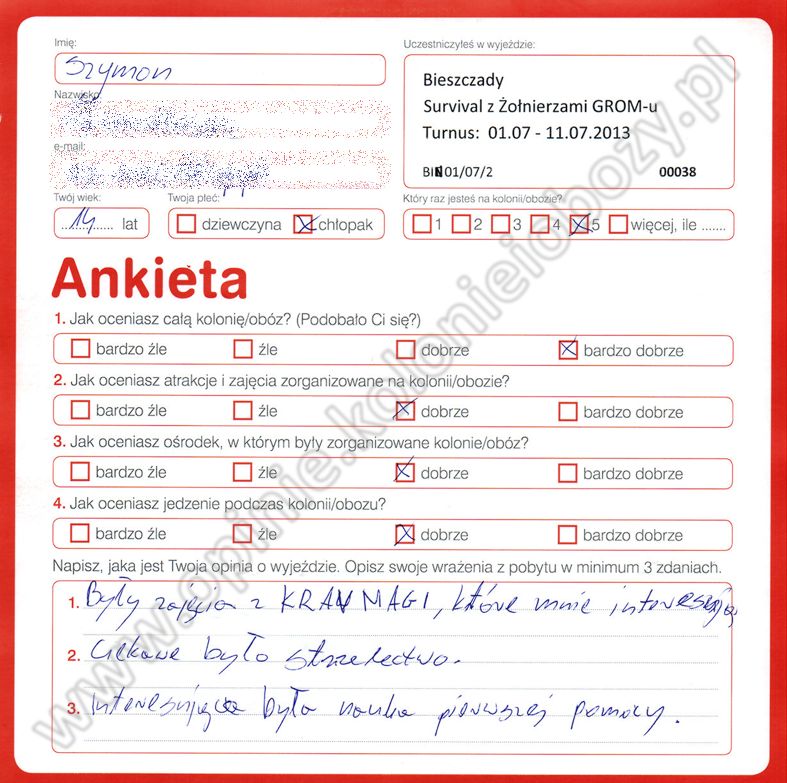 Imię:
Szymon
Nazwisko:
e-mail:
Twój wiek:
14 lat
Twoja płeć:
dziewczyna chłopak
Uczestniczyłeś w wyjeździe:
Bieszczady
Survival z Żołnierzami GROM-u
Turnus: 01.07 - 11.07.2013
01/07/2 00038
Który raz jesteś na kolonii/obozie?
1 2 3 4 5 więcej, ile .......
Ankieta
1. Jak oceniasz całą kolonię/obóz? (Podobało Ci się?)
bardzo źle źle dobrze bardzo dobrze
2. Jak oceniasz atrakcje i zajęcia zorganizowane na kolonii/obozie?
bardzo źle źle dobrze bardzo dobrze
3. Jak oceniasz ośrodek, w którym były zorganizowane kolonie/obóz?
bardzo źle źle dobrze bardzo dobrze
4. Jak oceniasz jedzenie podczas kolonii/obozu?
bardzo źle źle dobrze bardzo dobrze
Napisz, jaka jest Twoja opinia o wyjeździe. Opisz swoje wrażenia z pobytu w minimum 3 zdaniach.
1. Były zajęcia z KRAV MAGI, które mnie interesują
2. Ciekawe było strzelectwo.
3. Interesująca była nauka pierwszej pomocy.
www.opinie.kolonieiobozy.pl